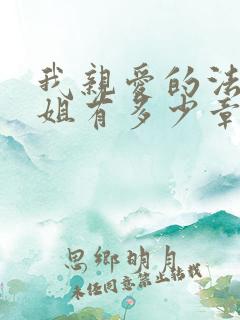 我親愛的法
姐有多少章
思鄉明月
未经同意禁止转载